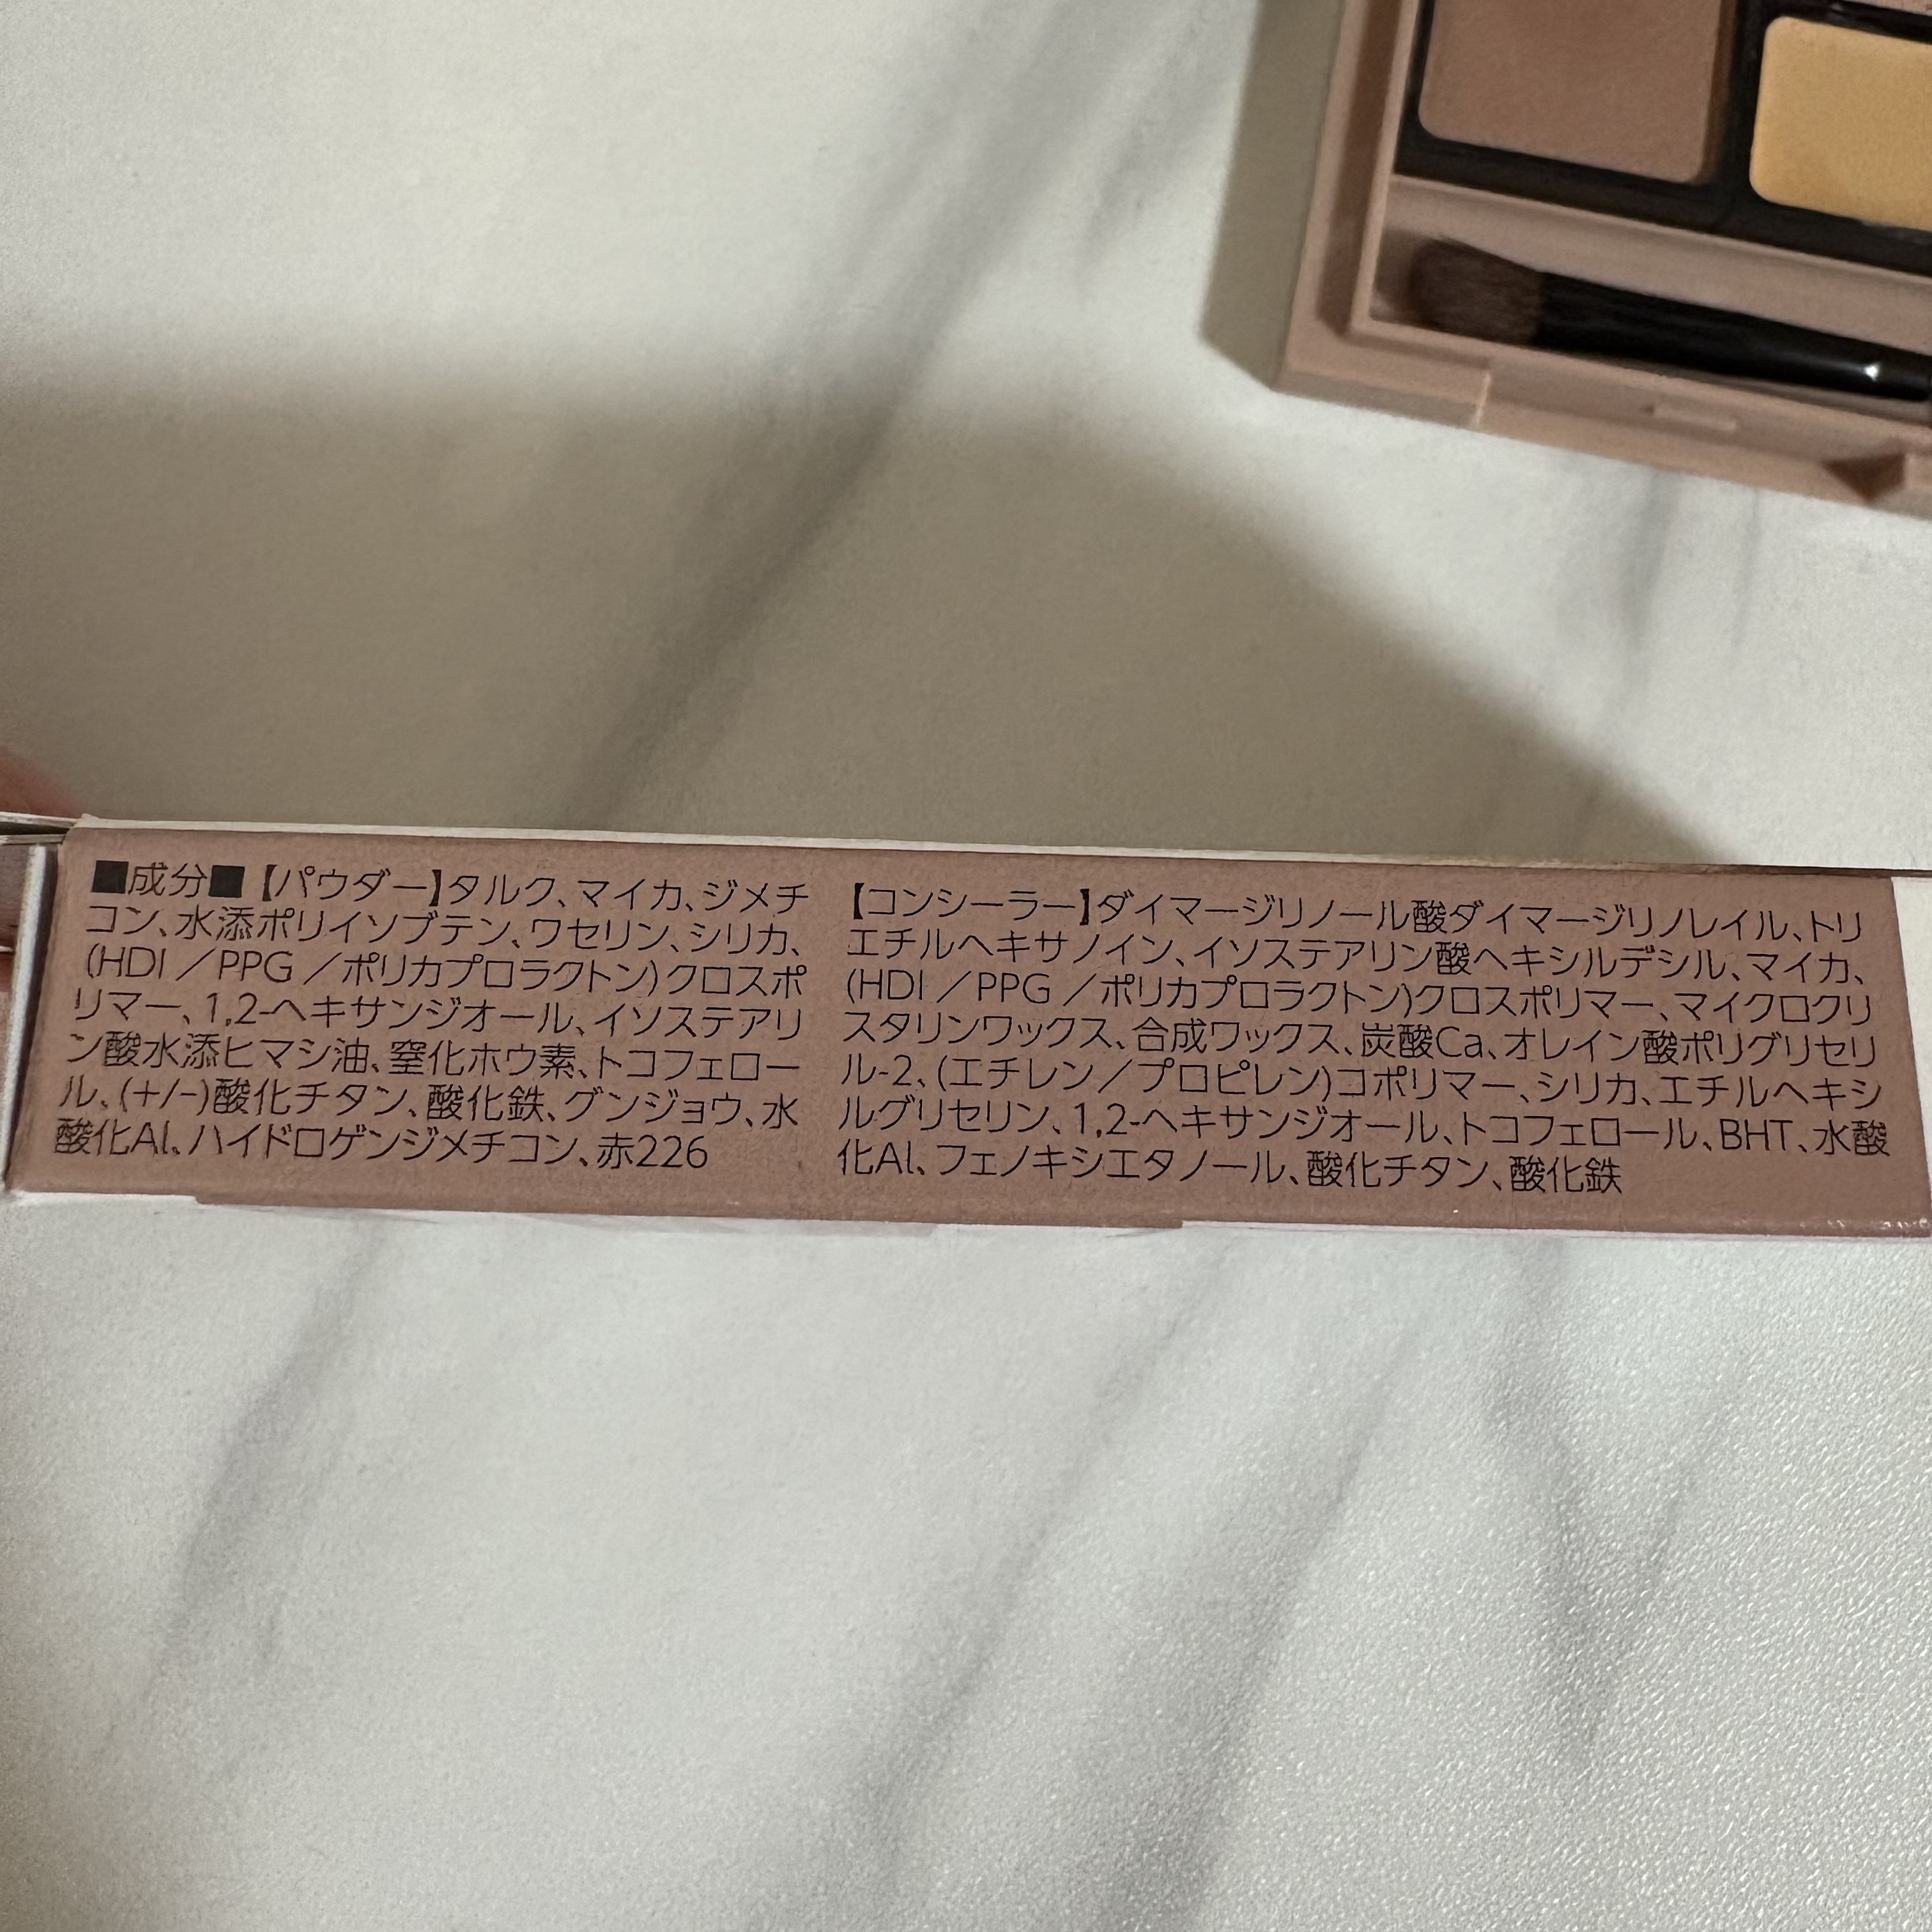 ■成分■【パウダー】タルク、マイカ、ジメチ
コン、水添ポリイソブテン、ワセリン、シリカ、
(HDI／PPG／ポリカプロラクトン)クロスポ
リマー、1,2-ヘキサンジオール、イソステアリ
ン酸水添ヒマシ油、窒化ホウ素、トコフェロー
ル、(+/-)酸化チタン、酸化鉄、グンジョウ、水
酸化Al、ハイドロゲンジメチコン、赤226
【コンシーラー】ダイマージリノール酸ダイマージリノレイル、トリ
エチルヘキサノイン、イソステアリン酸ヘキシルデシル、マイカ、
(HDI／PPG／ポリカプロラクトン)クロスポリマー、マイクロクリ
スタリンワックス、合成ワックス、炭酸Ca、オレイン酸ポリグリセリ
ル-2、(エチレン／プロピレン)コポリマー、シリカ、エチルヘキシ
ルグリセリン、1,2-ヘキサンジオール、トコフェロール、BHT、水酸
化Al、フェノキシエタノール、酸化チタン、酸化鉄